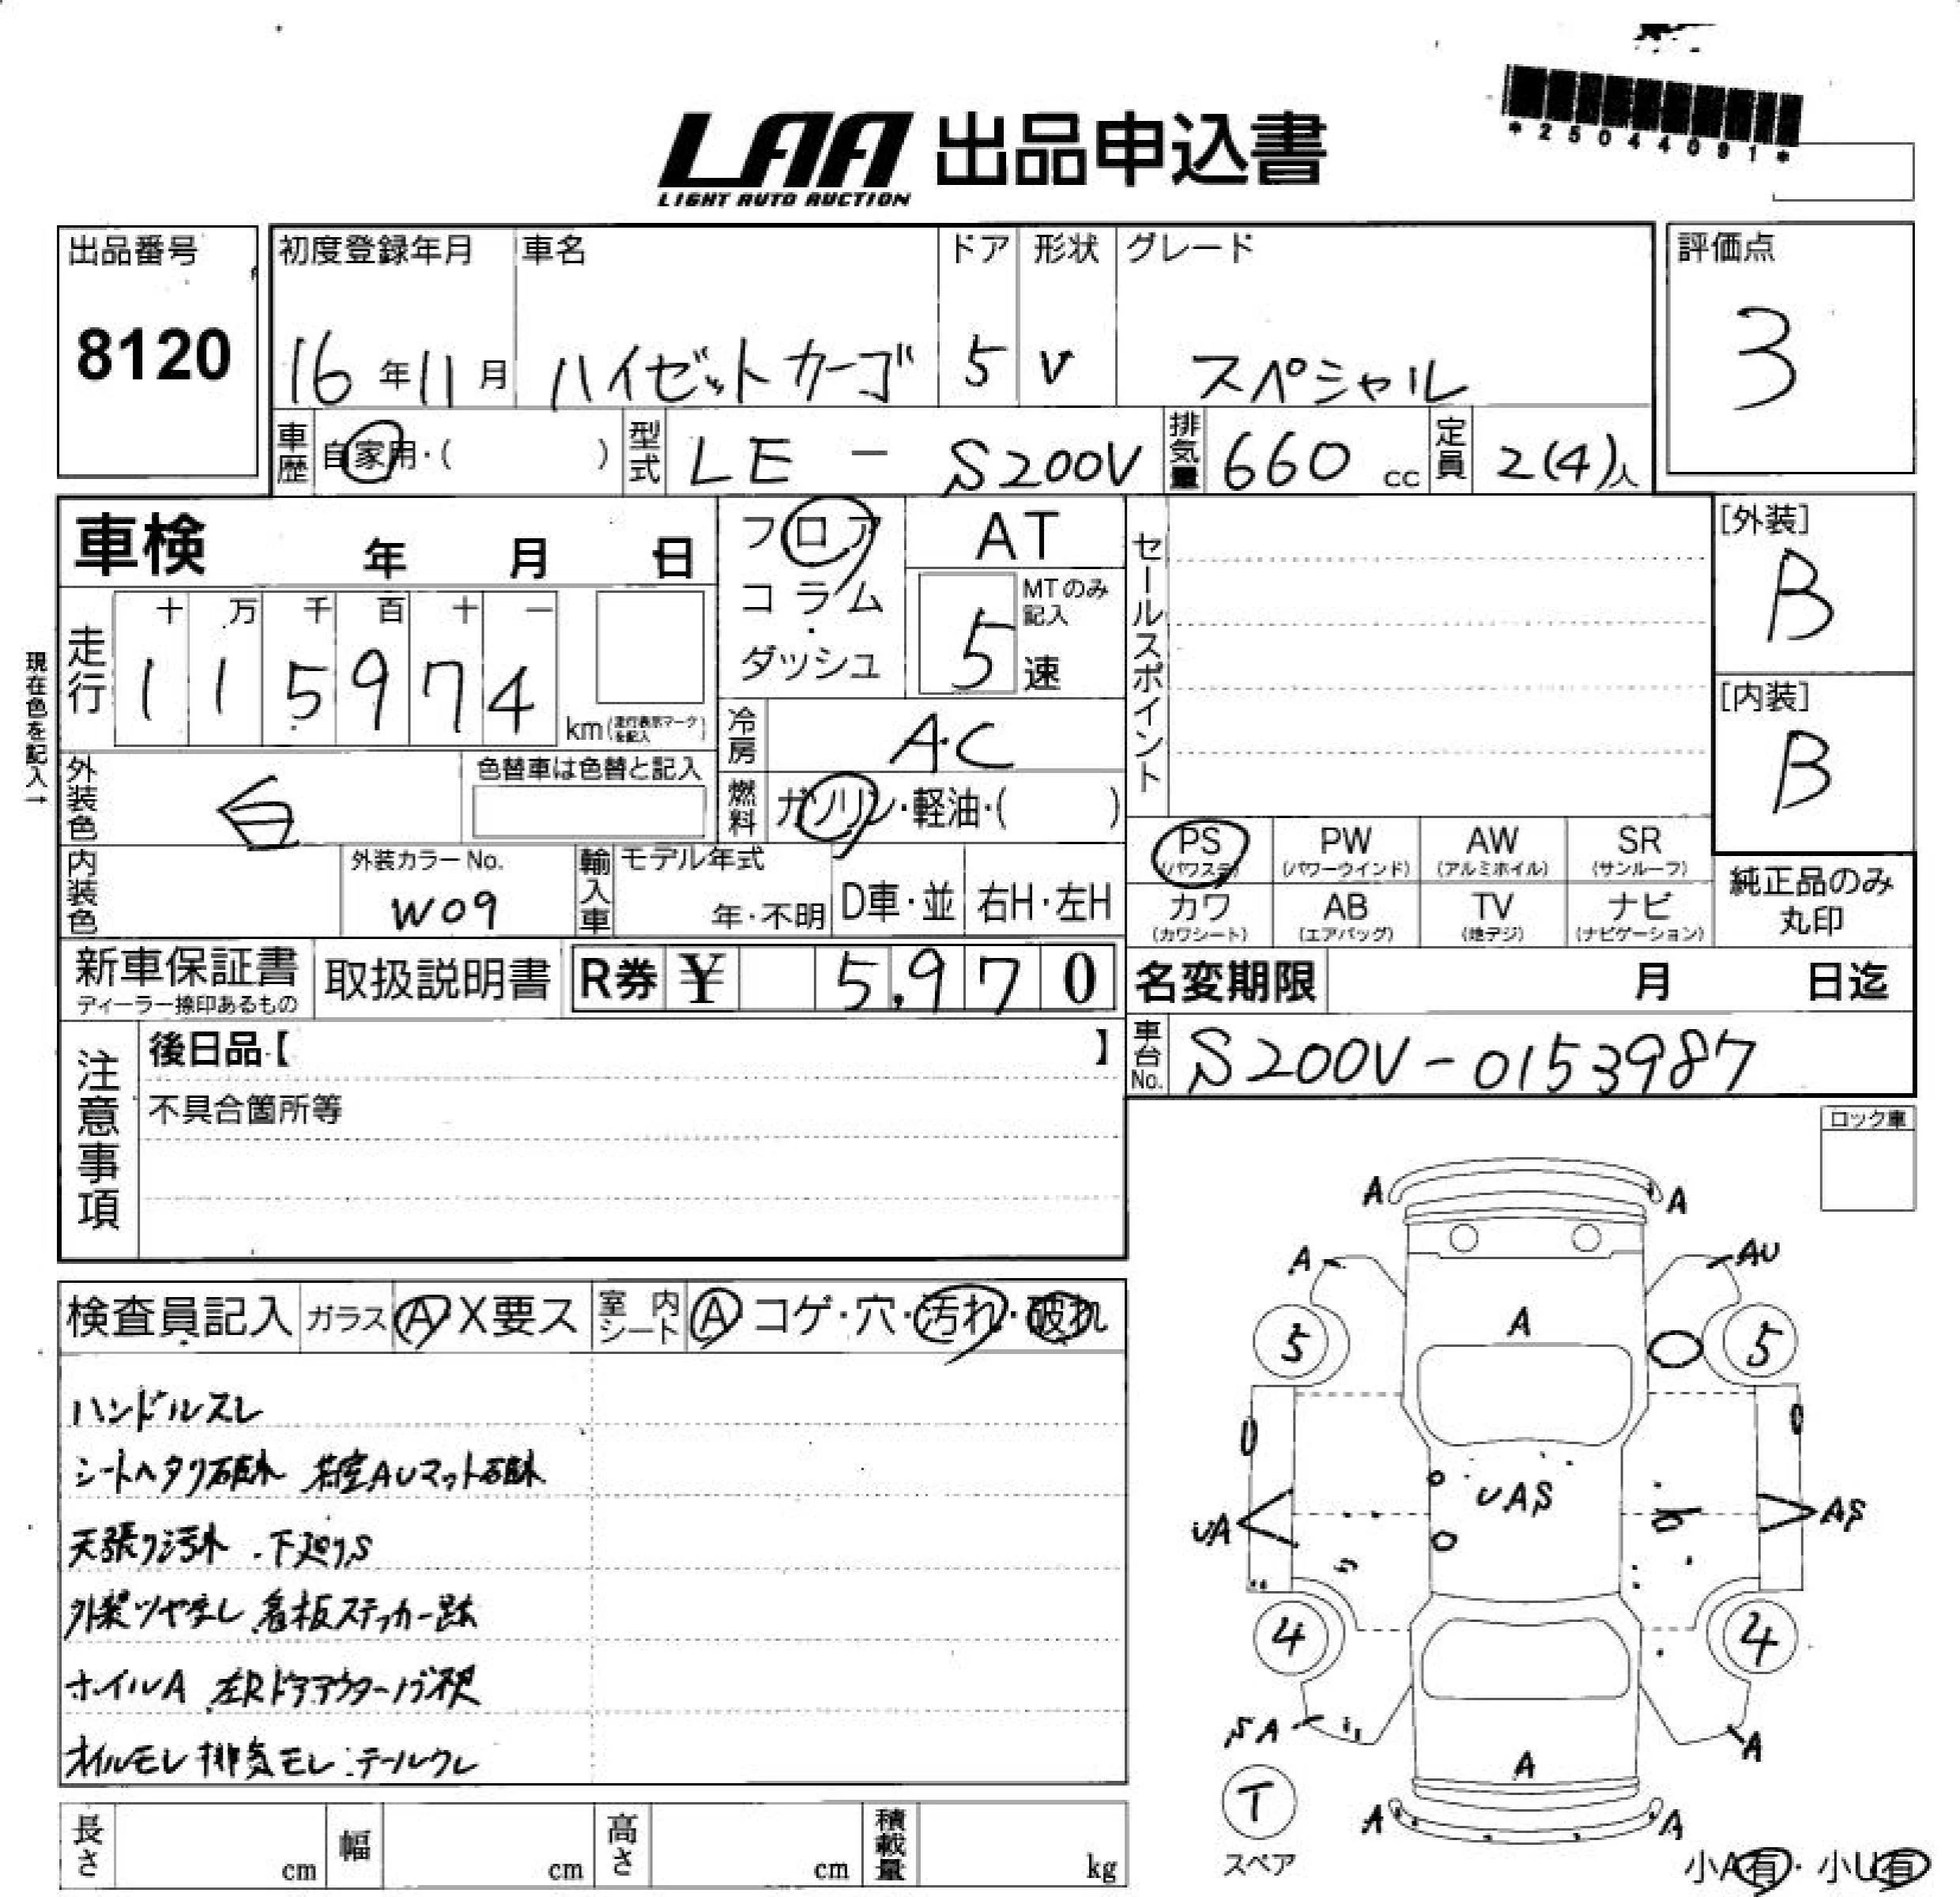 *25044091*
LAA 出品申込書
LIGHT AUTO AUCTION
出品番号 初度登録年月 車名 ドア 形状 グレード 評価点
8120 16年11月 ハイゼットカーゴ 5 V スペシャル 3
車歴 自家用・( ) 型式 LE - S200V 排気量 660cc 定員 2(4)人
車検 年 月 日 フロア AT セールスポイント [外装]
B
コラム・ MTのみ記入
ダッシュ 5速
現在色を記入→
走行 十 万 千 百 十 一
1 1 5 9 7 4 km(走行表示マークを記入)
[内装]
B
冷房 A.C
外装色 白 色替車は色替と記入 燃料 ガソリン・軽油・( )
PS PW AW SR
(パワステ) (パワーウインド) (アルミホイル) (サンルーフ)
内装色 外装カラーNo. W09 輸入車 モデル年式 年・不明 D車・並 右H・左H
カワ AB TV ナビ
(カワシート) (エアバッグ) (地デジ) (ナビゲーション)
純正品のみ
丸印
新車保証書 取扱説明書 R券 ¥ 5,970 名変期限 月 日迄
ディーラー捺印あるもの
注意事項 後日品【 】 車台No. S200V-0153987
不具合箇所等
ロック車
検査員記入 ガラス A X要ス 室内シート A コゲ・穴・汚れ・破れ
ハンドルスレ
シートヘタリ破れ 荷室AUマット破れ
天張り汚れ .下廻りS
外装ツヤ無し 看板ステッカー跡
ホイルA 左Rドアアウターノブ沢
オイルモレ 排気モレ テールワレ
A A
A AU
A
5 5
UAS
UA AS
4 4
SA A
A
T
スペア
A A
小A有・小U有
長さ cm 幅 cm 高さ cm 積載量 kg